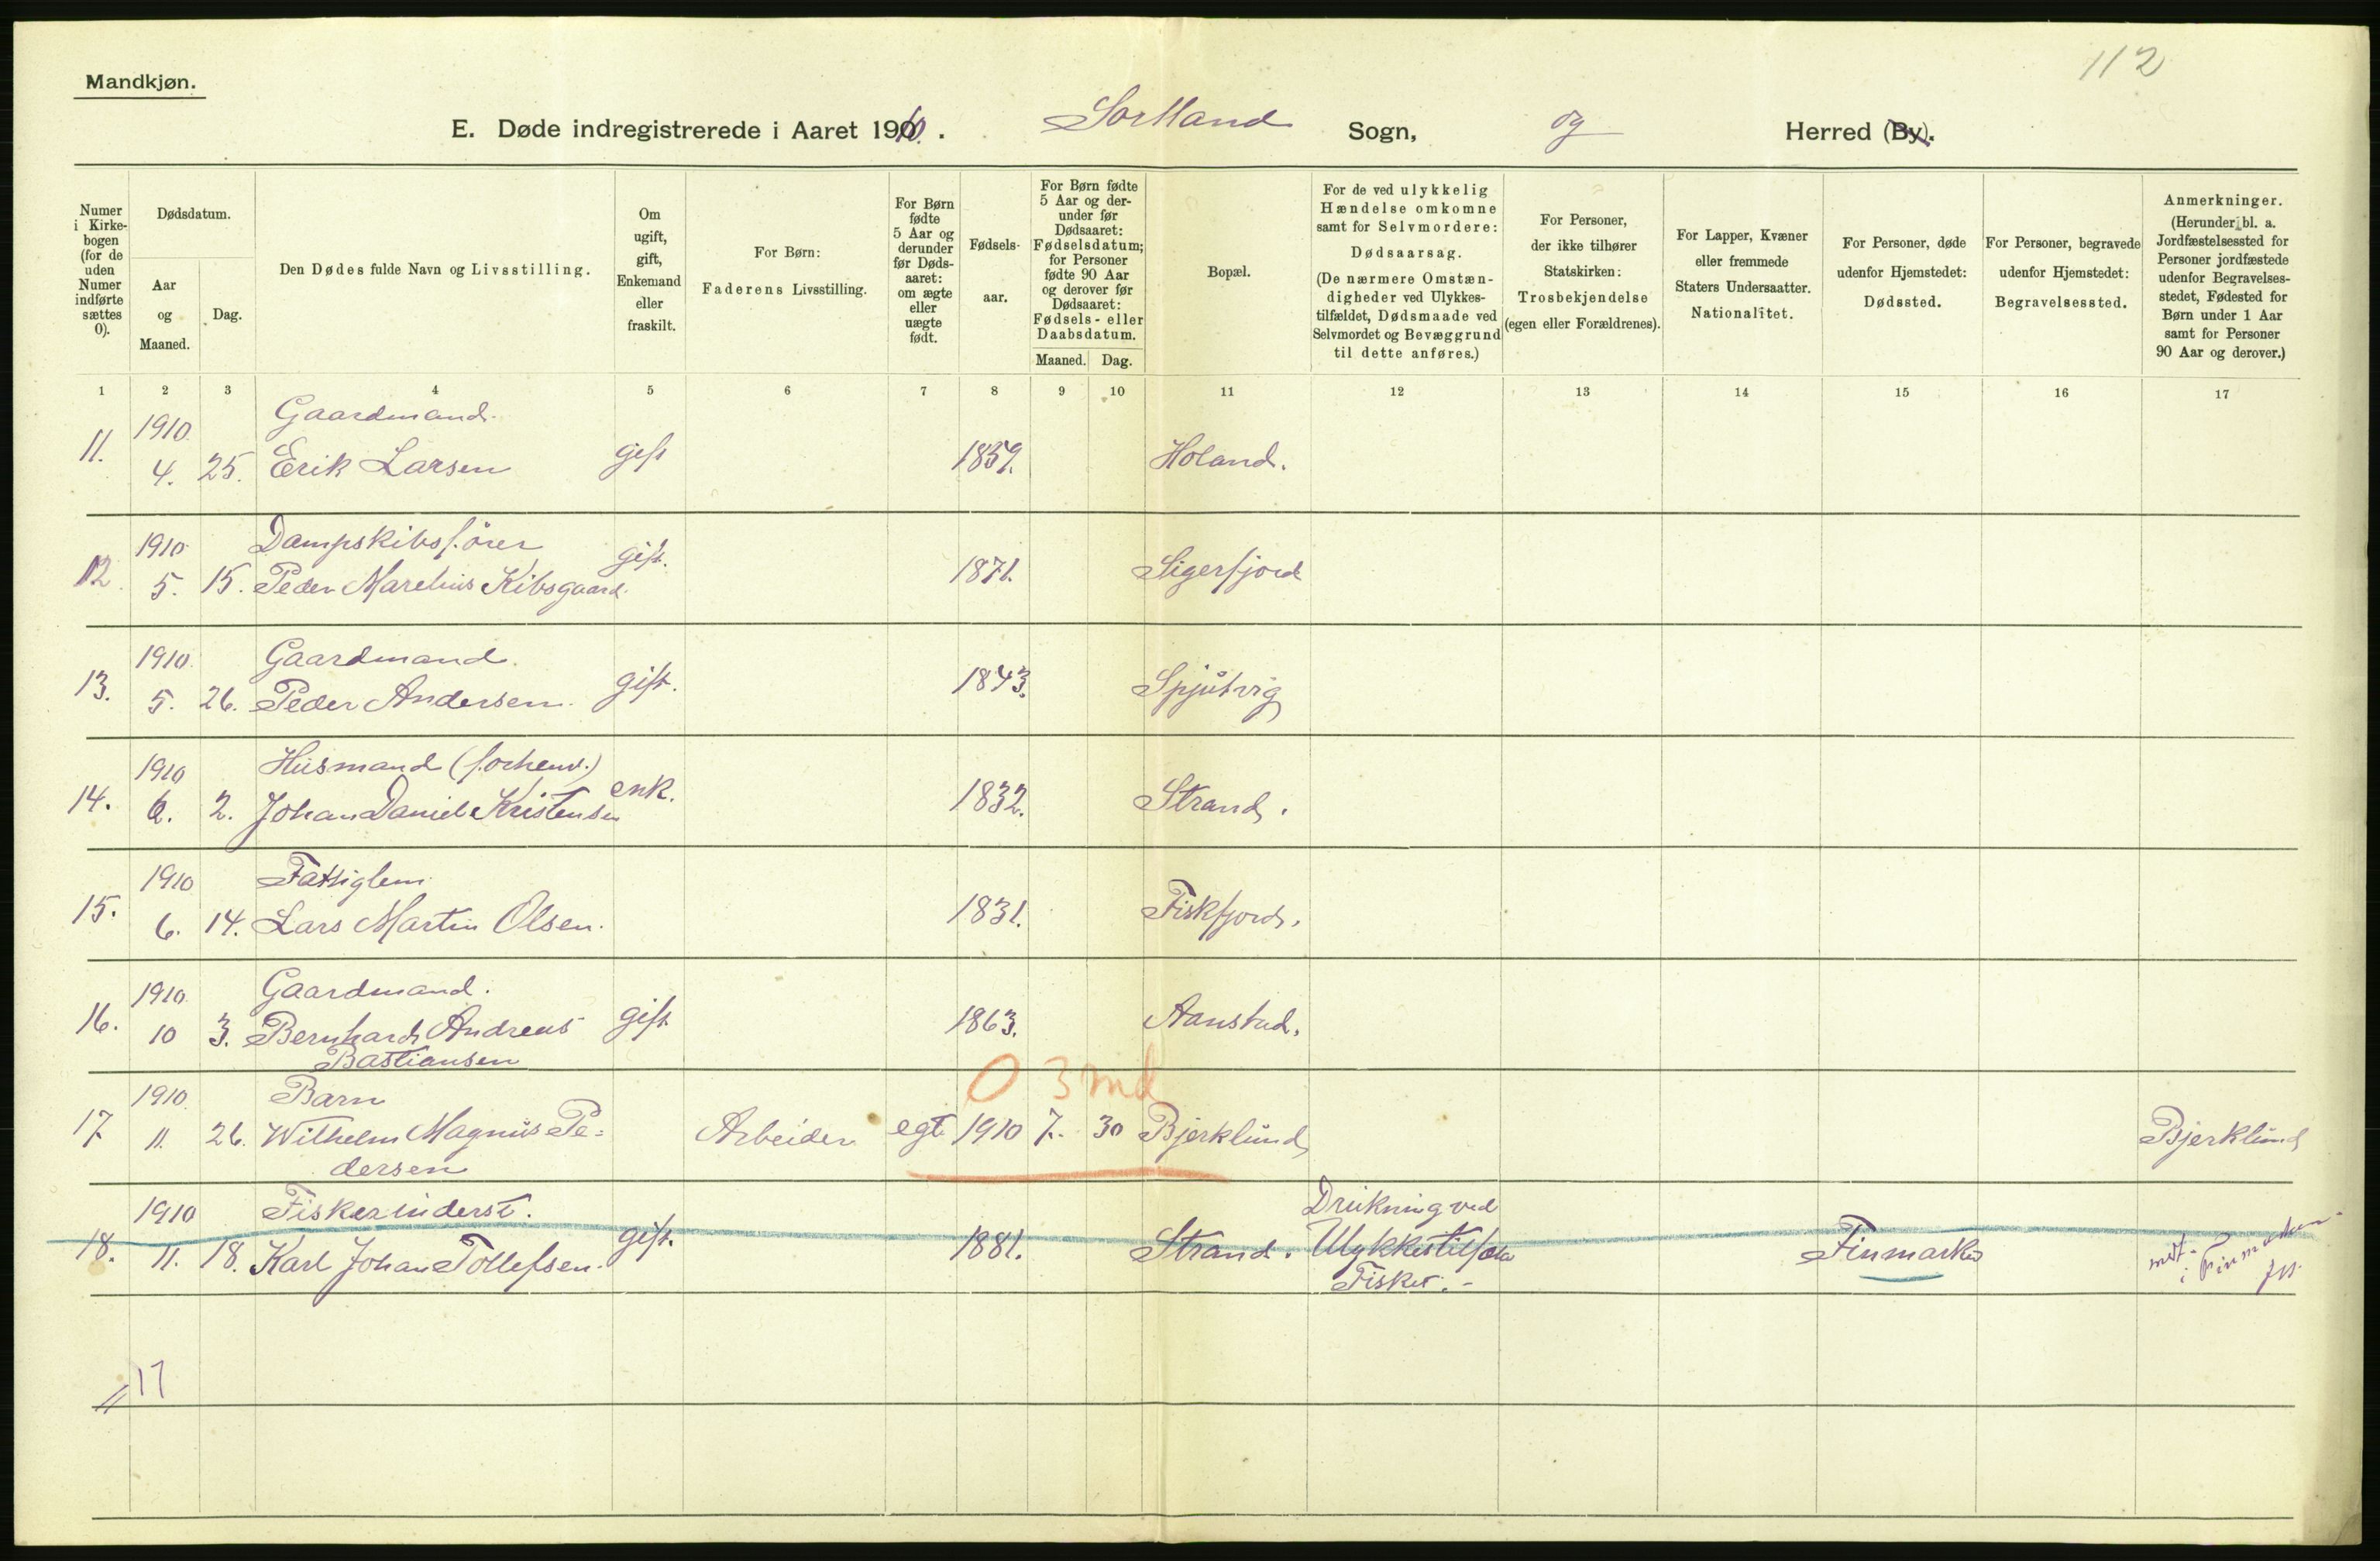 112
Mandkjøn.
E. Døde indregistrerede i Aaret 1910. Sortland Sogn, og Herred (By).
Numer i Kirke-bogen (for de uden Numer indførte sættes 0).
Dødsdatum.
Aar og Maaned.
Dag.
Den Dødes fulde Navn og Livsstilling.
Om ugift, gift, Enkemand eller fraskilt.
For Børn: Faderens Livsstilling.
For Børn fødte 5 Aar og derunder før Døds-aaret: om ægte eller uægte født.
Fødsels-aar.
For Børn fødte 5 Aar og der-under før Dødsaaret: Fødselsdatum; for Personer fødte 90 Aar og derover før Dødsaaret: Fødsels- eller Daabsdatum.
Maaned. Dag.
Bopæl.
For de ved ulykkelig Hændelse omkomne samt for Selvmordere: Dødsaarsag. (De nærmere Omstæn-digheder ved Ulykkes-tilfældet, Dødsmaade ved Selvmordet og Bevæggrund til dette anføres.)
For Personer, der ikke tilhører Statskirken: Trosbekjendelse (egen eller Forældrenes).
For Lapper, Kvæner eller fremmede Staters Undersaatter. Nationalitet.
For Personer, døde udenfor Hjemstedet: Dødssted.
For Personer, begravede udenfor Hjemstedet: Begravelsessted.
Anmerkninger. (Herunder bl. a. Jordfæstelsessted for Personer jordfæstede udenfor Begravelses-stedet, Fødested for Børn under 1 Aar samt for Personer 90 Aar og derover.)
1 2 3 4 5 6 7 8 9 10 11 12 13 14 15 16 17
1910. Gaardmand.
11. 4. 25. Erik Larsen gift 1859. Holand.
1910 Dampskibsfører
12. 5. 15. Peder Marelius Kibsgaard. gift. 1871. Sigerfjord
1910. Gaardmand.
13. 5. 26. Peder Andersen. gift. 1843. Spjutvig
1910 Husmand (forhenv.)
14. 6. 2. Johan Daniel Kristensen enk. 1832. Strand.
1910 Fattiglem.
15. 6. 14. Lars Martin Olsen. 1831. Fiskfjord.
1910 Gaardmand.
16. 10 3. Bernhard Andreas gift 1863. Aanstad.
Bastiansen
0 3 md
1910 Barn
17. 11. 26. Wilhelm Magnus Pe= Arbeider egt. 1910 7. 30 Bjerklund Bjerklund
dersen
1910 Fisker inderst. Drukning ved
18. 11. 18. Karl Johan Tollefsen. gift. 1881. Strand. Ulykkestilfælde Finmarken
Fisker. -
17